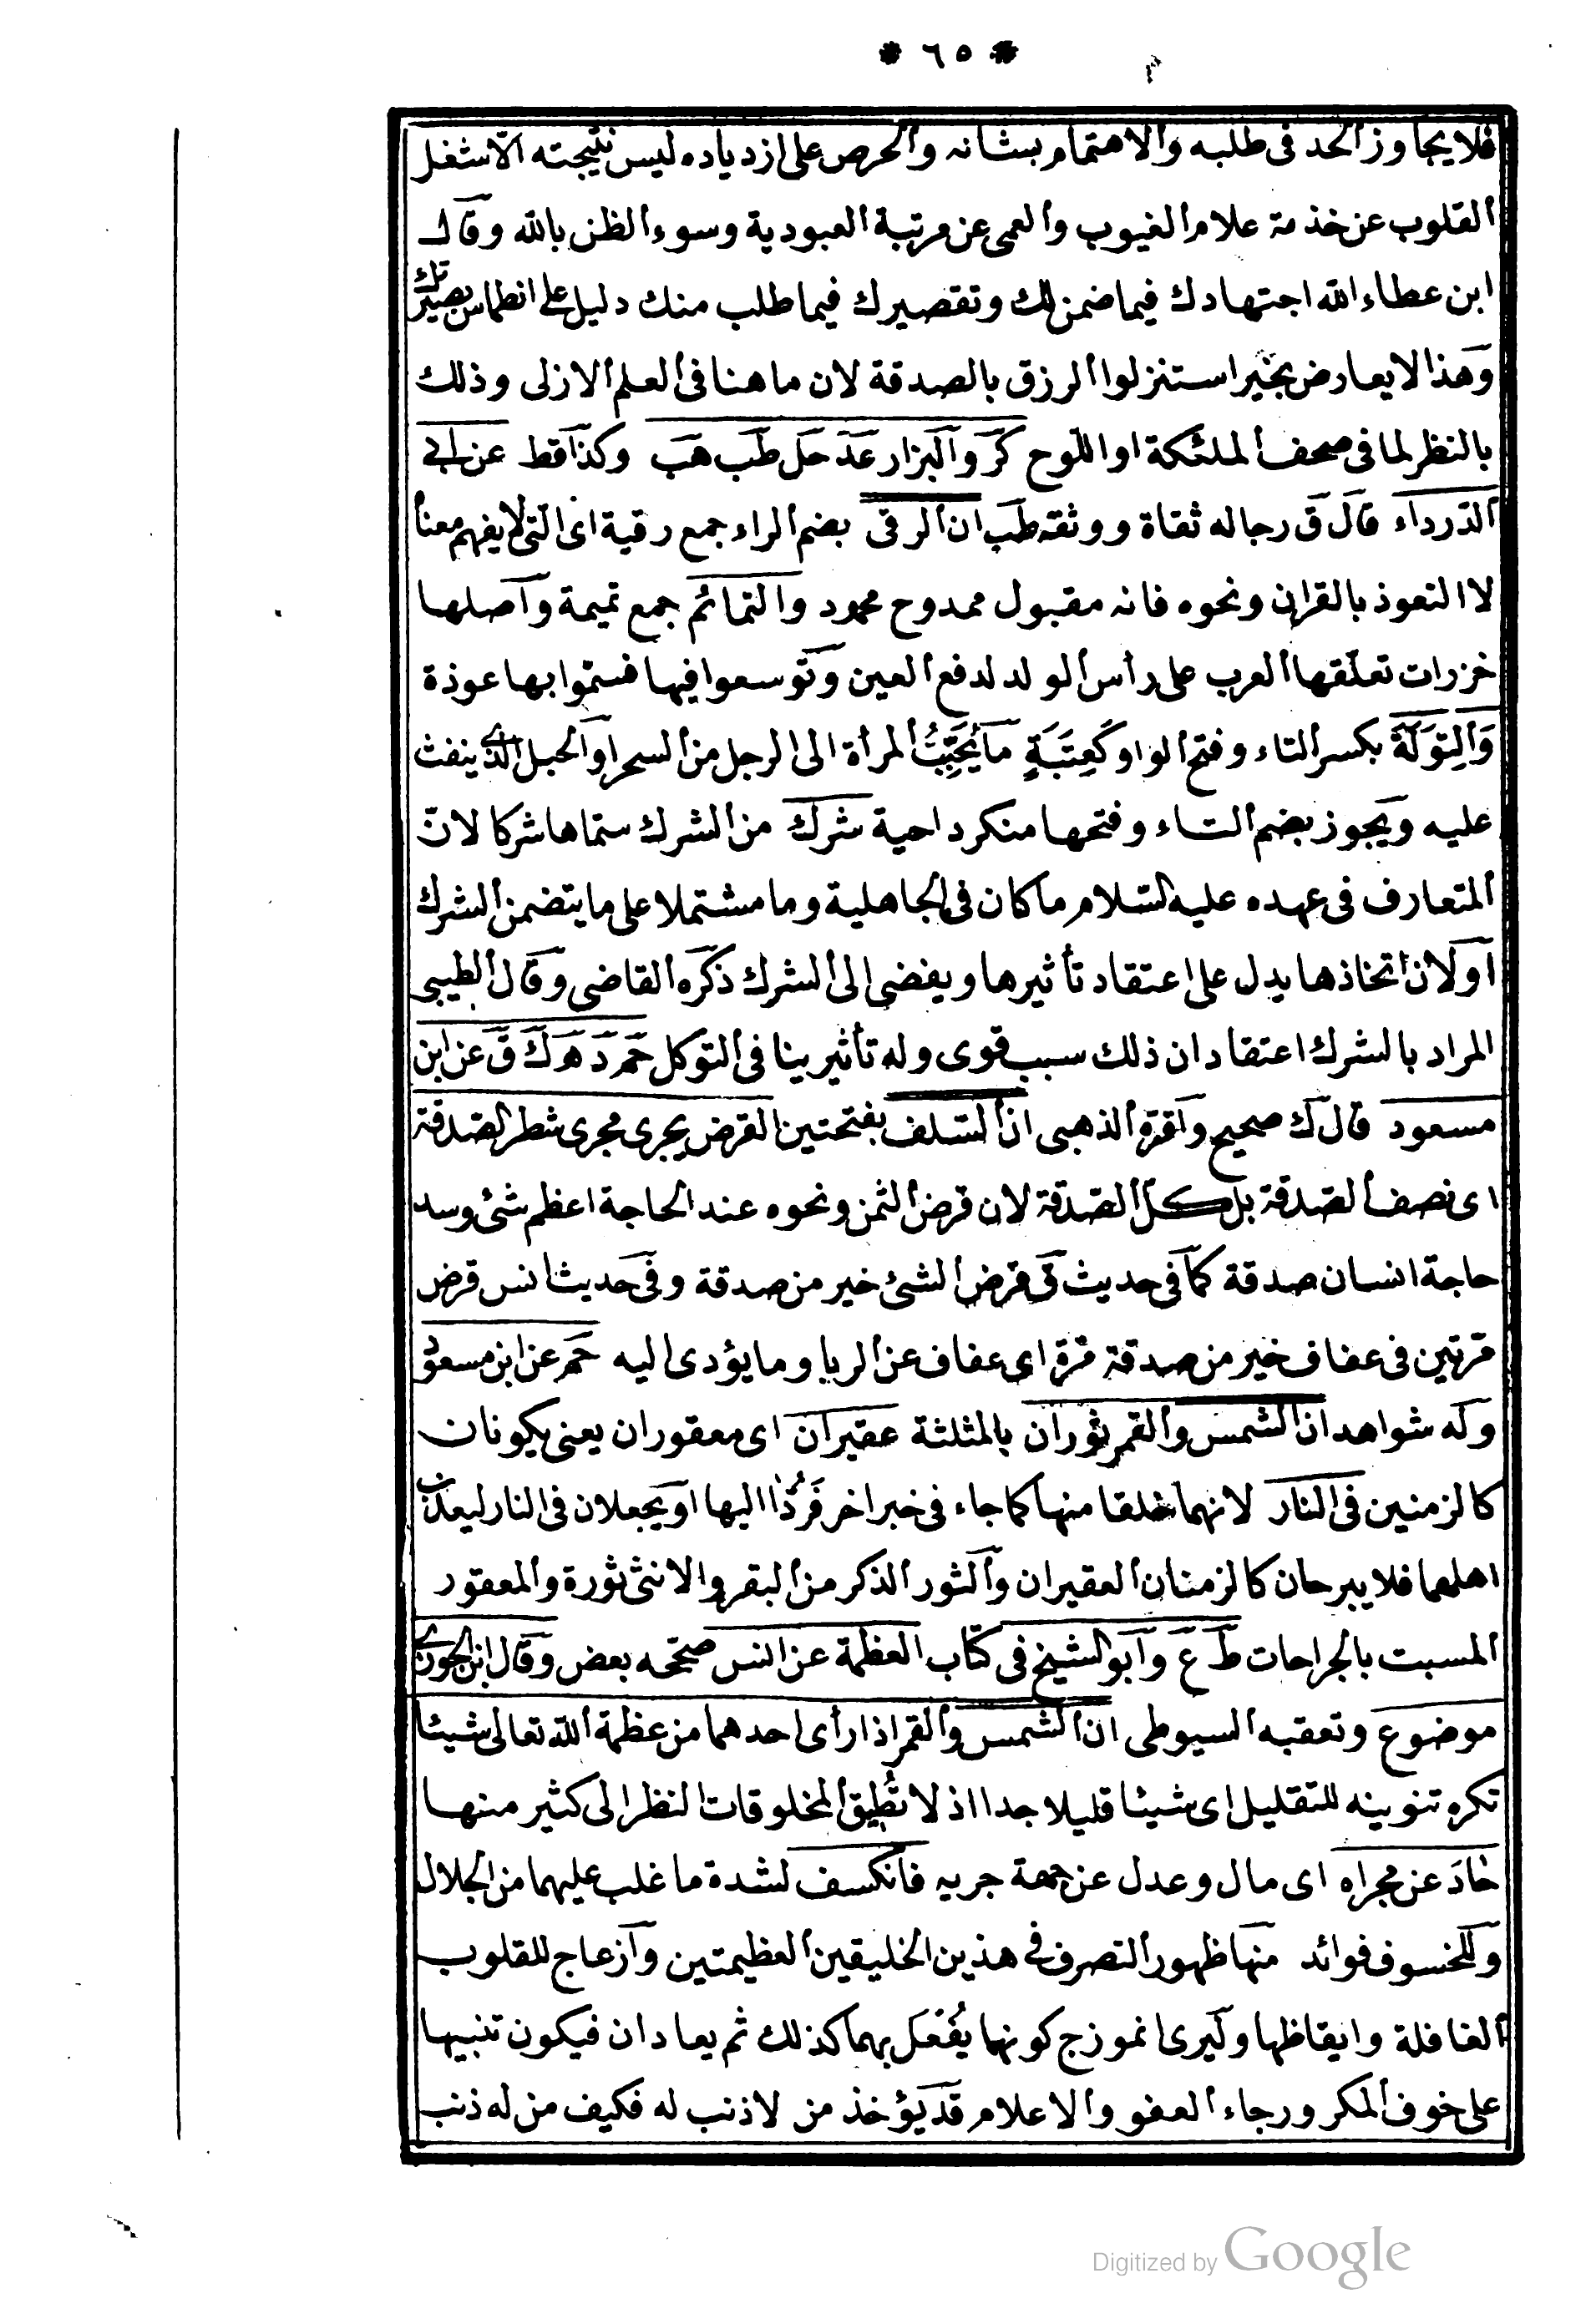 * ٦٥ *
فلا يجاوز الحد فى طلبه والاهتمام بشانه والحرص على ازدياده ليس نتيجته الا شغل
القلوب عن خذمة علام الغيوب والعمى عن مرتبة العبودية وسوء الظن بالله وقال
ابن عطاء الله اجتهادك فيما ضمن لك وتقصيرك فيما طلب منك دليل على انطماس بصيرتك
وهذا لا يعارض بخبر استنزلوا الرزق بالصدقة لان ما هنا فى العلم الازلى وذلك
بالنظر لما فى صحف الملئكة او اللوح كر والبزار عد حل طب هب وكذا قط عن ابى
الدرداء قال ق رجاله ثقاة ووثقه طب ان الرقى بضم الراء جمع رقية اى التى لا يفهم معنا
لا التعوذ بالقران ونحوه فانه مقبول ممدوح محمود والتمائم جمع تميمة واصلها
خزرات تعلّقها العرب على رأس الولد لدفع العين وتوسعوا فيها فسمّوا بها عوذة
وَالتِوَلَةَ بكسر التاء وفتح الواو كَعِتَبَةٍ ما يُحَبِّبُ المرأة الى الرجل من السحر او الحبل الذى ينفث
عليه ويجوز بضم التاء وفتحها منكر داحية شرك من الشرك سمّاها شركا لانّ
المتعارف فى عهده عليه السّلام ما كان فى الجاهلية وما مشتملا على ما يتضمن الشرك
او لان اتخاذها يدل على اعتقاد تأثيرها ويفضى الى الشرك ذكره القاضى وقال الطيبى
المراد بالشرك اعتقاد ان ذلك سبب قوى وله تأثير ينافى التوكل حم د ه ك ق عن ابن
مسعود قال ك صحيح واقرّه الذهبى ان السّلف بفتحتين القرض يجرى مجرى شطر الصّدقة
اى نصف الصّدقة بل كل الصّدقة لان قرض الثمن ونحوه عند الحاجة اعظم شئ وسد
حاجة انسان صدقة كما فى حديث ق قرض الشئ خير من صدقة وفى حديث انس قرض
مرتين فى عفاف خير من صدقة مرّة اى عفاف عن الربا وما يؤدى اليه حم عن ابن مسعود
وله شواهد ان الشمس والقمر ثوران بالمثلثة عقيران اى معقوران يعنى يكونان
كالزمنين فى النار لانهما خلقا منها كما جاء فى خبر اخر فَرُدّا اليها او يجعلان فى النار ليعذب
اهلهما فلا يبرحان كالزمنان العقيران والثور الذكر من البقر والانثى ثورة والمعقور
المسبت بالجراحات ط ع وابو الشيخ فى كتاب العظمة عن انس صححه بعض وقال ابن الجوزى
موضوع وتعقبه السيوطى ان الشمس والقمر اذا رأى احدهما من عظمة الله تعالى شيئا
تكره تنوينه للتقليل اى شيئا قليلا جدا اذ لا تُطيق المخلوقات النظر الى كثير منها
حادَ عن مجراه اى مال وعدل عن جهة جريه فانكسف لشدة ما غلب عليهما من الجلال
وللخسوف فوائد منها ظهور التصرف فى هذين الخليقين العظيمتين وازعاج للقلوب
الغافلة وايقاظها وليرى انموزج كونهما يُفْعَل بهما كذلك ثم يعادان فيكون تنبيها
على خوف المكر ورجاء العفو والاعلام قد يؤخذ من لا ذنب له فكيف من له ذنب
Digitized by Google